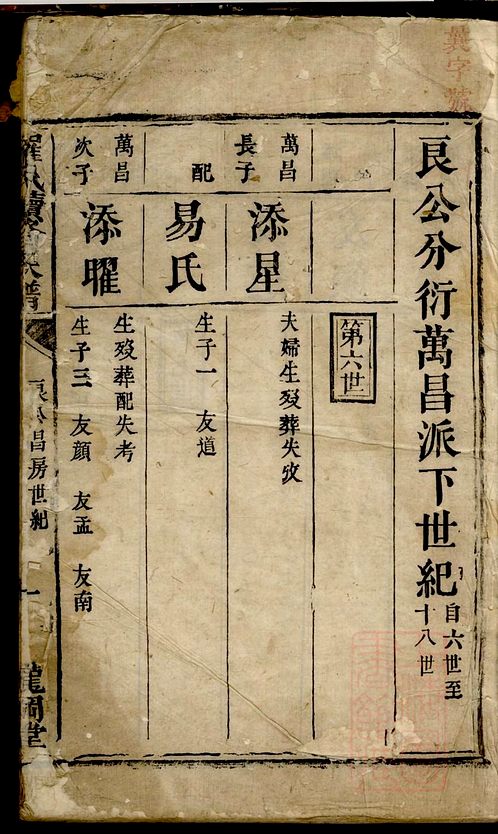 冀字號
良公分衍萬昌派下世紀
自六世至
十八世
第六世
萬昌
長子
添星
夫婦生歿葬失攷
配
易氏
生子一 友道
萬昌
次子
添曜
生歿葬配失考
生子三 友顔 友孟 友南
良公昌房世紀
一